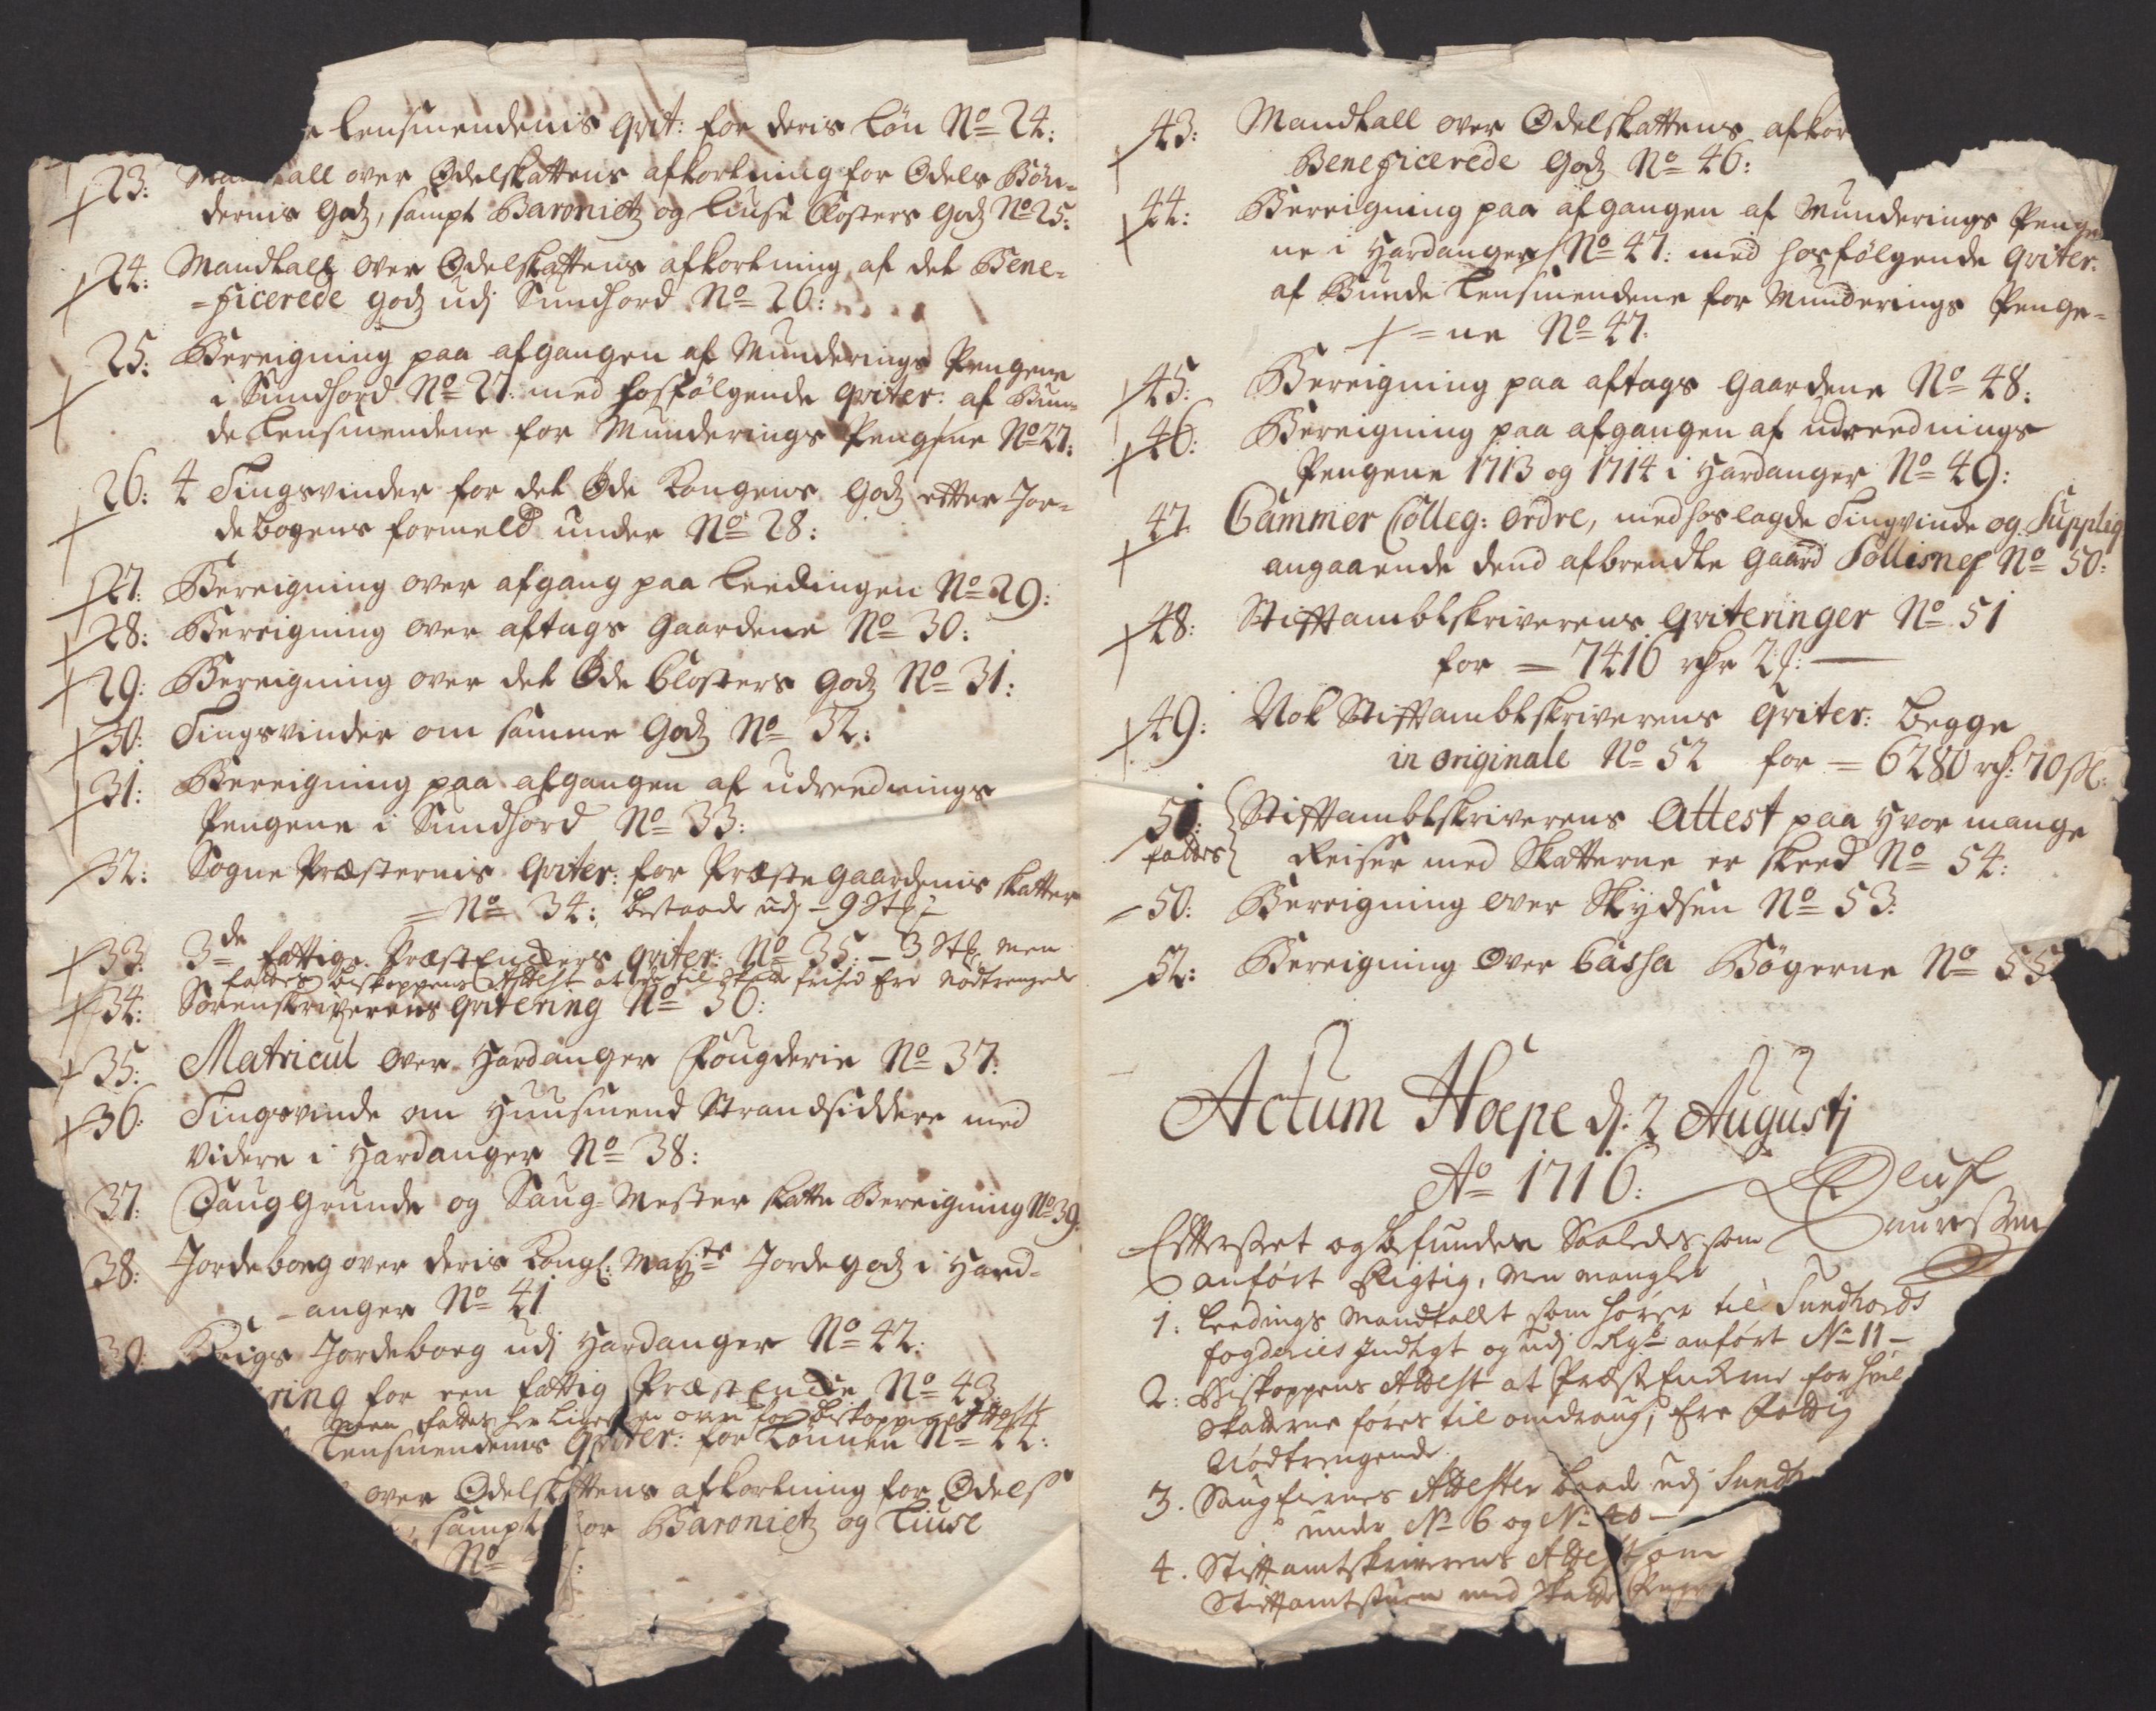 Lensmendenis qvit: for deris Løn No 24:
23: Mandtall over Odelskattens afkortning for Odels Bøn-
dernis Godz, sampt Baronietz og Liuse Closters Godz No 25:
24: Mandtall over Odelskattens afkortning af det Bene-
=ficerede godz udj Sundhord No 26:
25: Bereigning paa afgangen af Munderings Pengene
i Sundhord No 27: med hosfølgende qviter: af Bun-
de Lensmendene for Munderings Pengene No 27:
26: 4 Tingsvinder for det Øde Kongens Godz efter Jor-
debogens formeld under No 28:
27: Bereigning over afgang paa Leedingen No 29:
28: Bereigning over aftags Gaardene No 30:
29: Bereigning over det Øde Closters Godz No 31:
30: Tingsvinder om samme Godz No 32:
31: Bereigning paa afgangen af udreednings
Pengene i Sundhord No 33:
32: Sogne Præsternis qviter: for Præste Gaardenis skatter
= No 34: bestaade udj - 9 Stk:
33: 3de fattige Præst Enckers qviter: No 35: - 3 Stk men
fattes Biskoppens Attest at de til Skatte frihed Ere Nødtrengede
34: Sorenskriverens qvitering No 36:
35: Matricul over Hardanger Fougderie No 37:
36: Tingsvinde om Huusmend Strandsiddere med
videre i Hardanger No 38:
37: Saug Grunde og Saug-Mester skatte Bereigning No 39:
38: Jordeboeg over deris Kongl: Maysts Jordegodz i Hard-
-anger No 41
39: Krigs Jordeboeg udj Hardanger No 42:
ring for een fattig Præst Encke No 43:
Men fattes her ligesom ovenfor Biskoppens Attest
Lensmendenis qviter: for Lønnen No 44:
over Odelskattens afkortning for Odels
sampt for Baronietz og Liuse
No
43: Mandtall over Odelskattens afkor
Beneficerede Godz No 46:
44: Bereigning paa afgangen af Munderings Penge
ne i Hardanger No 47: med hosfølgende qviter:
af Bunde Lensmendene for Munderings Penge-
=ne No 47:
45: Bereigning paa aftags Gaardene No 48:
46: Bereigning paa afgangen af udreednings
Pengene 1713 og 1714 i Hardanger No 49:
47: Cammer Colleg: Ordre, med hoslagde Tingsvinde og Suppliq
angaaende dend afbrendte Gaard No 50:
48: Stifftambtskriverens qviteringer No 51
for = 7416 rdr 2 s:
49: Nok Stifftambtskriverens qviter: begge
in originale No 52 for = 6280 rd: 70 s:
51: Stifftambtskriverens Attest paa Hvor mange
fattes Reiser med Skatterne er skeed No 54:
50: Bereigning over Skydsen No 53:
52: Bereigning Over Cassa Bøgerne No 55
Actum Hoepe d: 2 Augustj
Ao 1716:
Oluf
Laurssen
Efterseet og befunden Saaledes som
anført Rigtig, men mangler
1: Leedings Mandtallet som hører til Sundhords
fogderies Indtegt og udj Rgsk: anført No 11 -
2: Biskoppens Attest at Præst Enckerne for hvil
Skatterne føres til omdraug, Ere Fattig
Nødtrengende
3. Saugfiernes Attester baade udj Sundh
under No 6 og No 40 -
4. Stiftamtskriverens Attest om
Stiftamtstuen med Skatte Penge